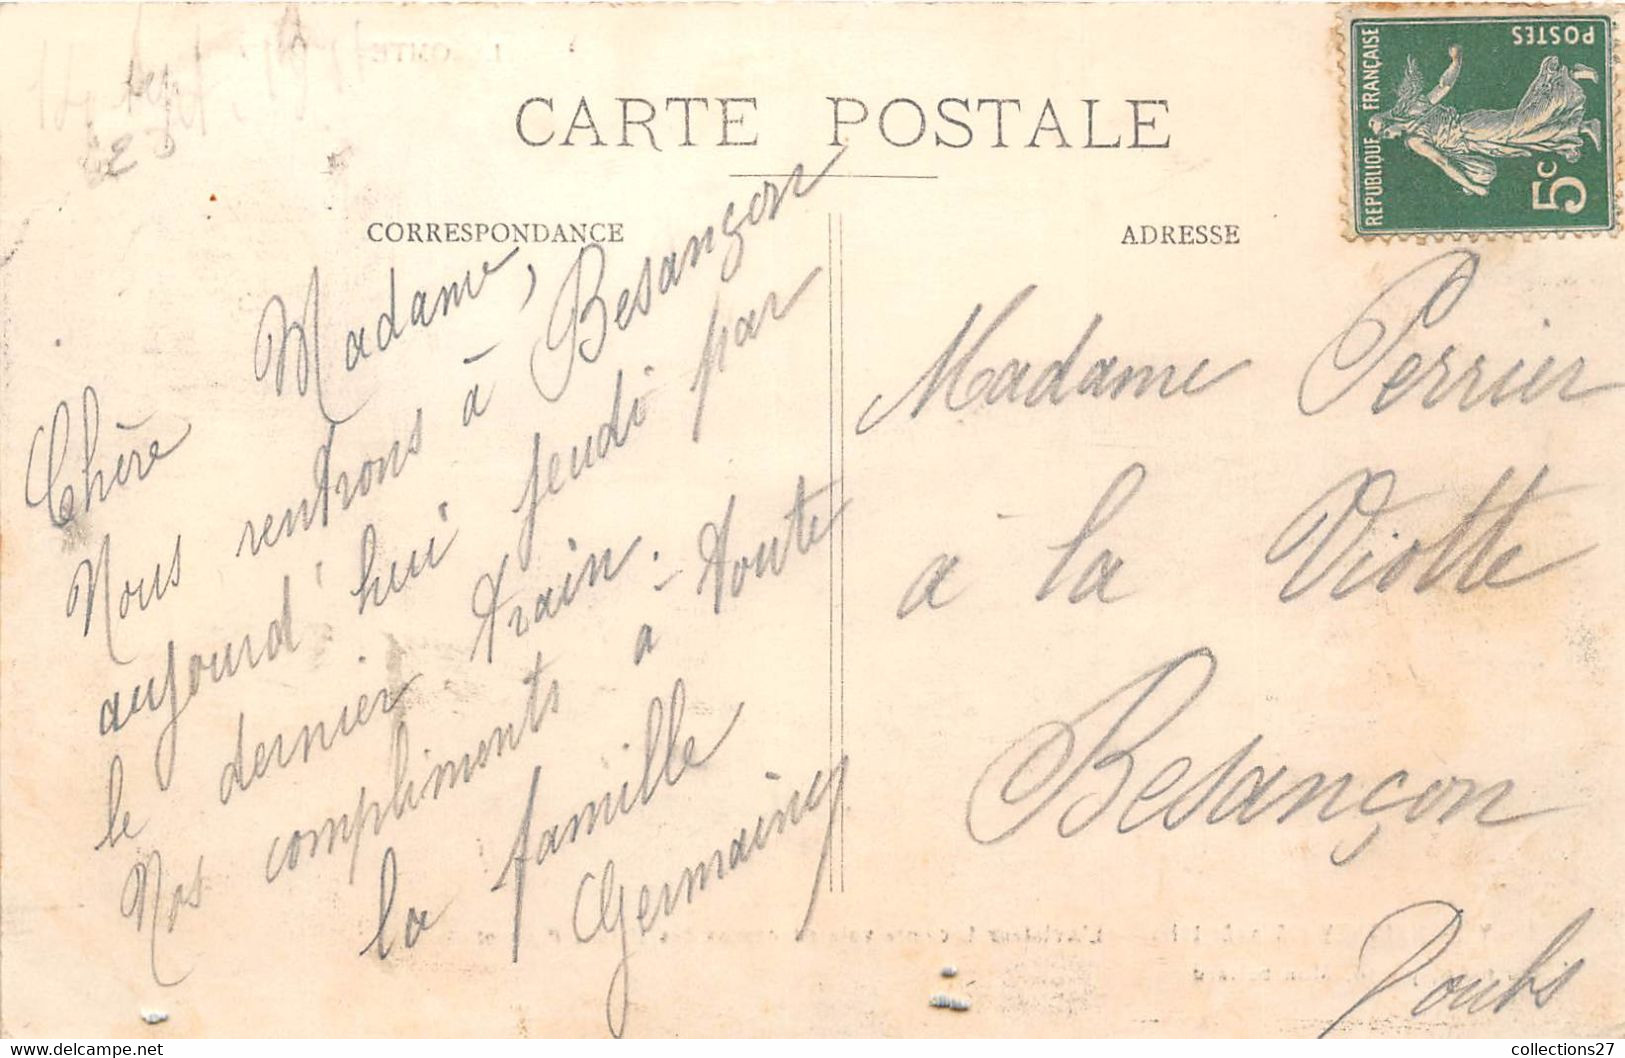 CARTE POSTALE
CORRESPONDANCE
ADRESSE
REPUBLIQUE FRANÇAISE
POSTES
5c
Chère Madame,
Nous rentrons à Besançon
aujourd'hui jeudi par
le dernier train. -
Nos compliments a toute
la famille
Germainy
Madame Perrier
à la Viotte
Besançon
Doubs
collections27